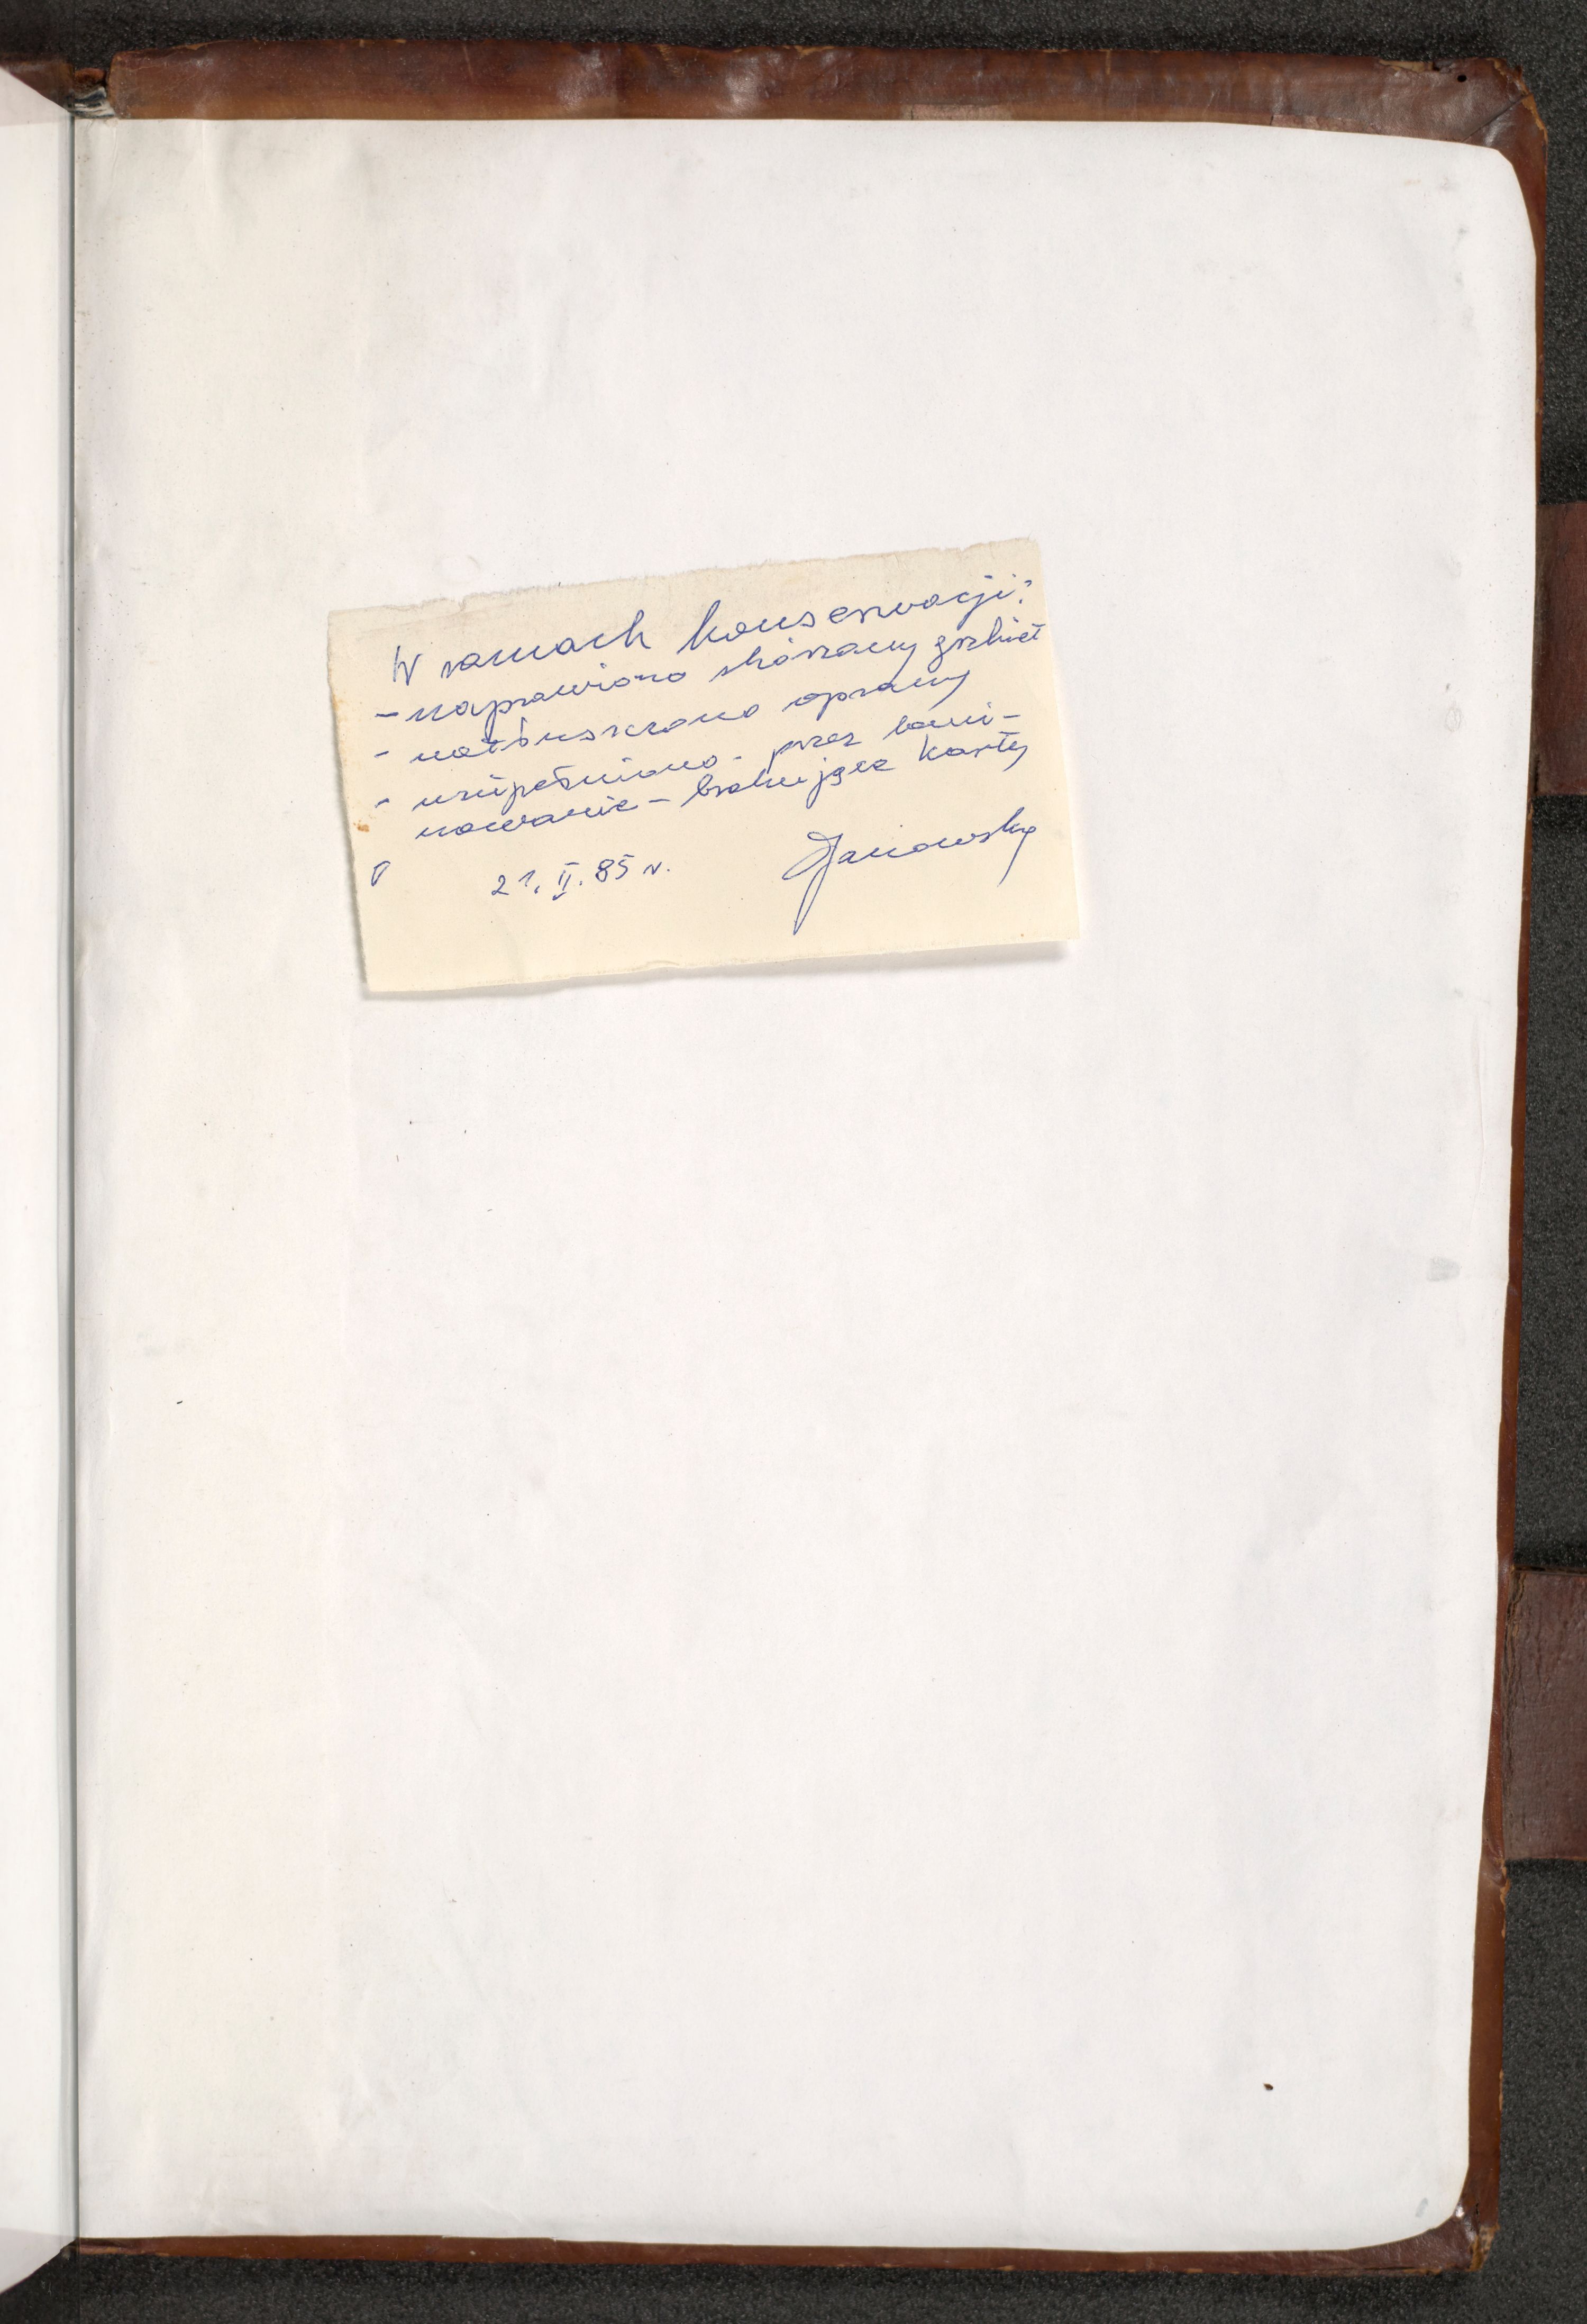 W ramach konserwacji:
- naprawiono skórzany grzbiet
- natłuszczono oprawy
- uzupełniono - przez lami-
nowanie - brakujące karty
21. II. 85 r. Janowsky